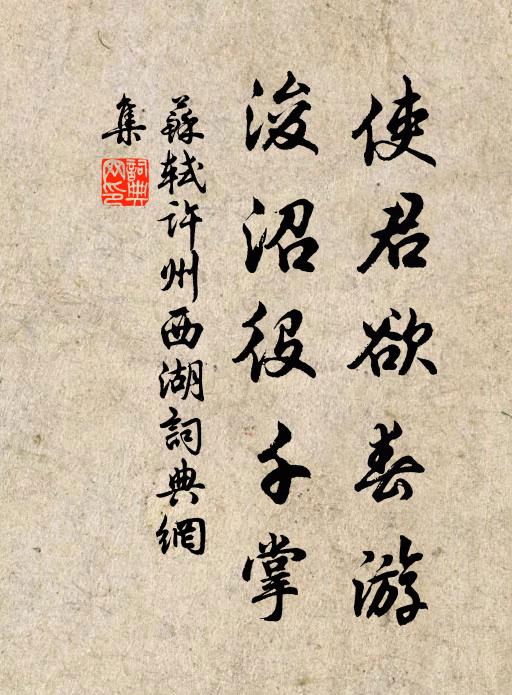 使君欲春游
浚沼役千掌
蘇軾许州西湖詞典網
集
詞典網印